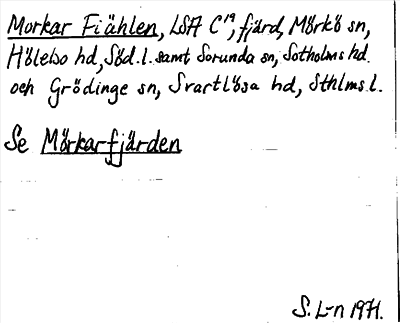 Morkar Fiählen, LSA C19, fjärd, Mörkö sn,
Hölebo hd, Söd.l. samt Sorunda sn, Sotholms hd.
och Grödinge sn, Svartlösa hd, Sthlms l.
Se Mörkarfjärden
S. L-n 1971.